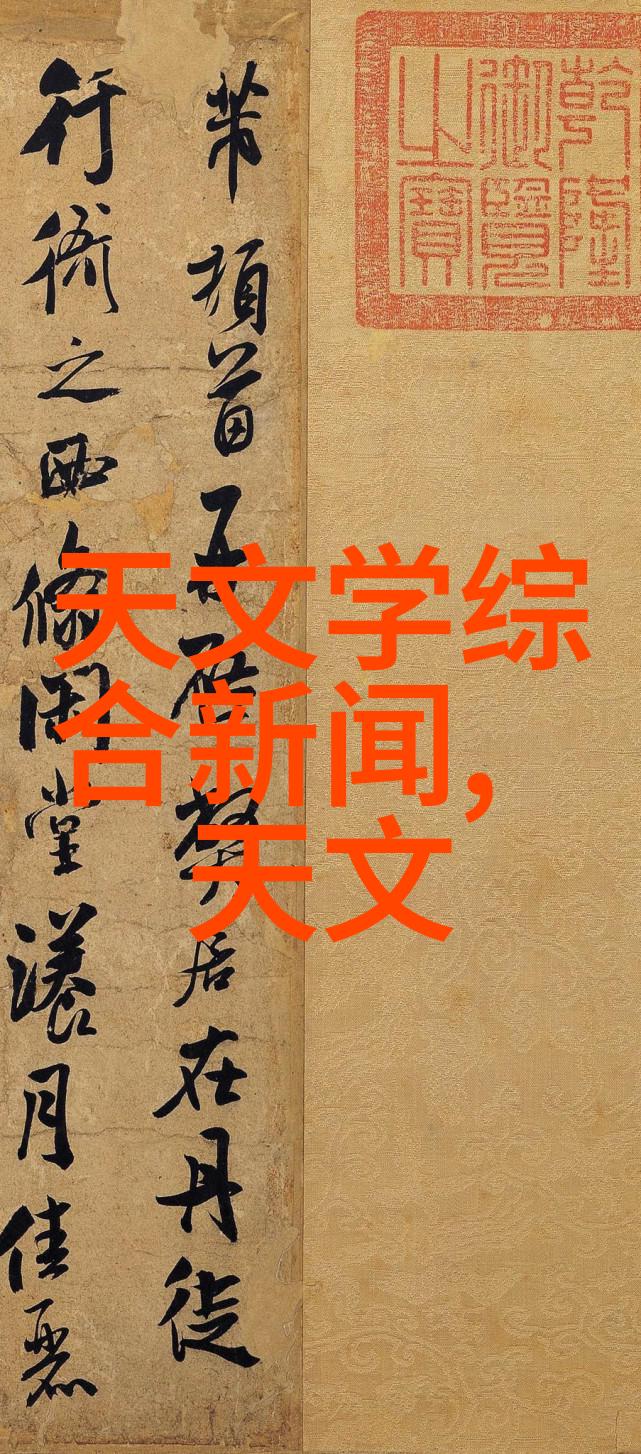 乾隆
御覽
之寶
芾頓首再啟弊居在丹徒
行衙之西翛閑堂漾月佳麗
天文学综
合新闻,
天文